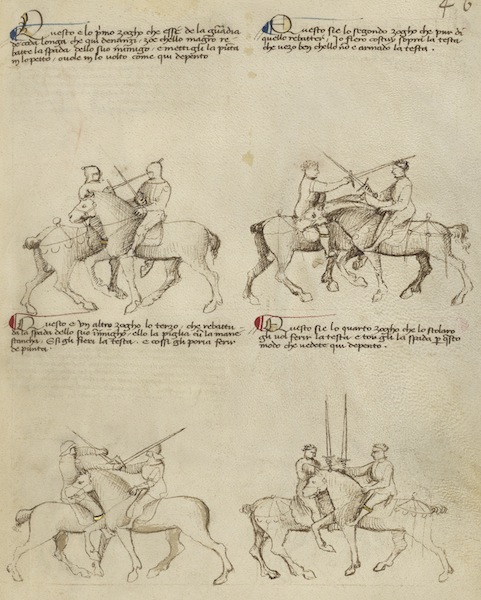 46
Questo e lo primo zogho che esse de la guardia
de coda longa che qui denanzi, zoe chello magro re
bate la spada dello suo inimigo, e mettigli la punta
in lo petto, o vole in lo volto come qui depento
Questo sie lo segondo zogho che pur di
quello rebatter, Io fiero costuy sopra la testa
che vezo ben chello non e armado la testa.
Questo e un altro zogho lo terzo, che rebattu
da la spada dello suo inimigho, ello la piglia cum la mane
stancha, e si gli fieri la testa, e cossi gli poria ferir
de punta.
Questo sie lo quarto zogho che lo scolaro
gli vol ferir la testa e tor gli la spada per questo
modo che vedete qui depento.